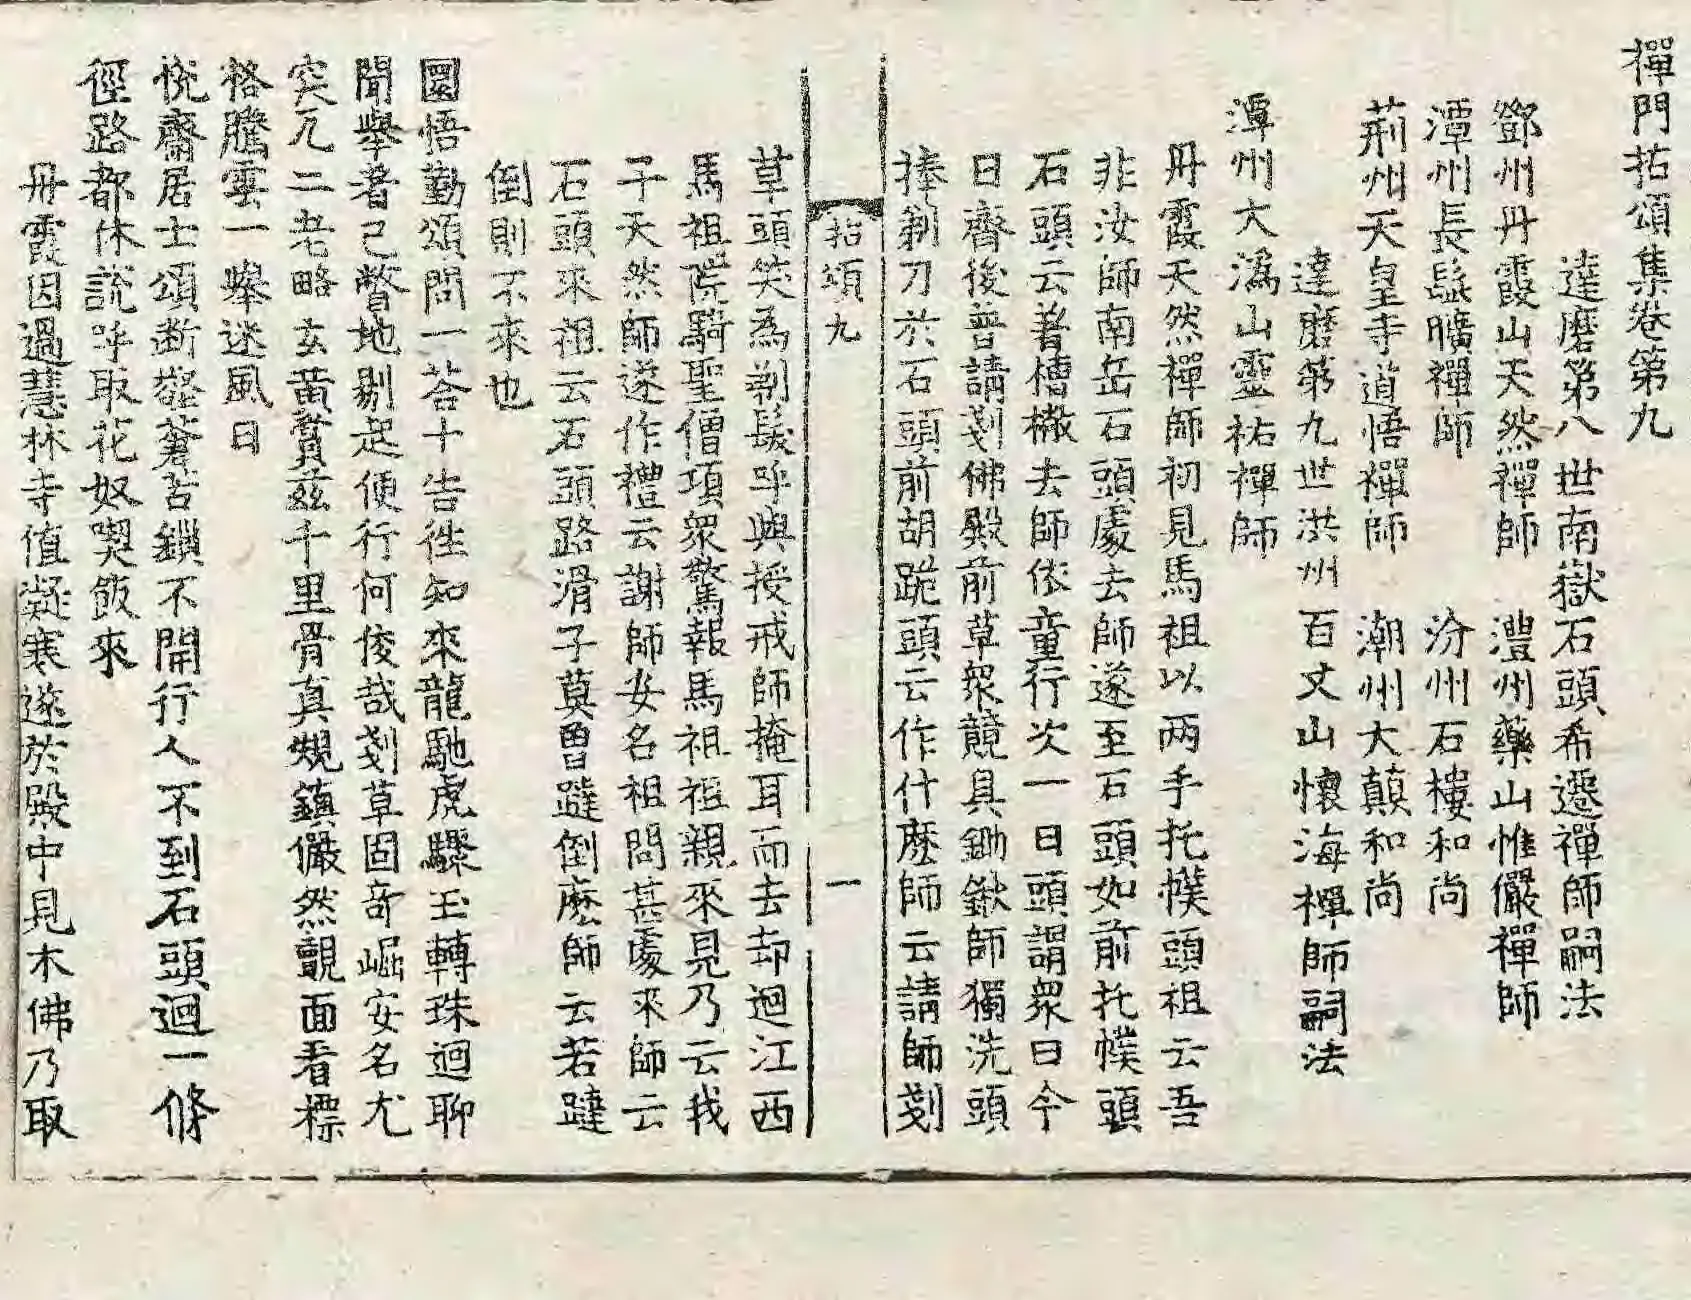 禪門拈頌集卷第九
達磨第八世南嶽石頭希遷禪師嗣法
鄧州丹霞山天然禪師 澧州藥山惟儼禪師
潭州長髭曠禪師 汾州石樓和尚
荊州天皇寺道悟禪師 潮州大顛和尚
達磨第九世洪州百丈山懷海禪師嗣法
潭州大潙山靈祐禪師
丹霞天然禪師初見馬祖以两手托幞頭祖云吾
非汝師南岳石頭處去師遂至石頭如前托幞頭
石頭云著槽橵去師依童行次一日頭謂衆曰今
日齊後普請剗佛殿前草衆競具鋤鍬師獨洗頭
捧剃刀於石頭前胡跪頭云作什麽師云請師剗
拈頌九 一
草頭笑為剃髮呼與授戒師掩耳而去却迴江西
馬祖院騎聖僧項衆驚報馬祖祖親來見乃云我
子天然師遂作禮云謝師安名祖問甚處來師云
石頭來祖云石頭路滑子莫曾躂倒麽師云若躂
倒則不來也
圜悟勤頌問一荅十告徃知來龍馳虎驟玉轉珠迴聊
聞擧著已瞥地剔起便行何俊哉剗草固奇崛安名尤
突兀二老略玄黃賞兹千里骨真規鎮儼然覿面看標
格騰雲一擧迷風日
悅齋居士頌断壑蒼苔鎖不開行人不到石頭迴一條
徑路都休說呼取花奴喫飯來
丹霞因過慧林寺值凝寒遂於殿中見木佛乃取